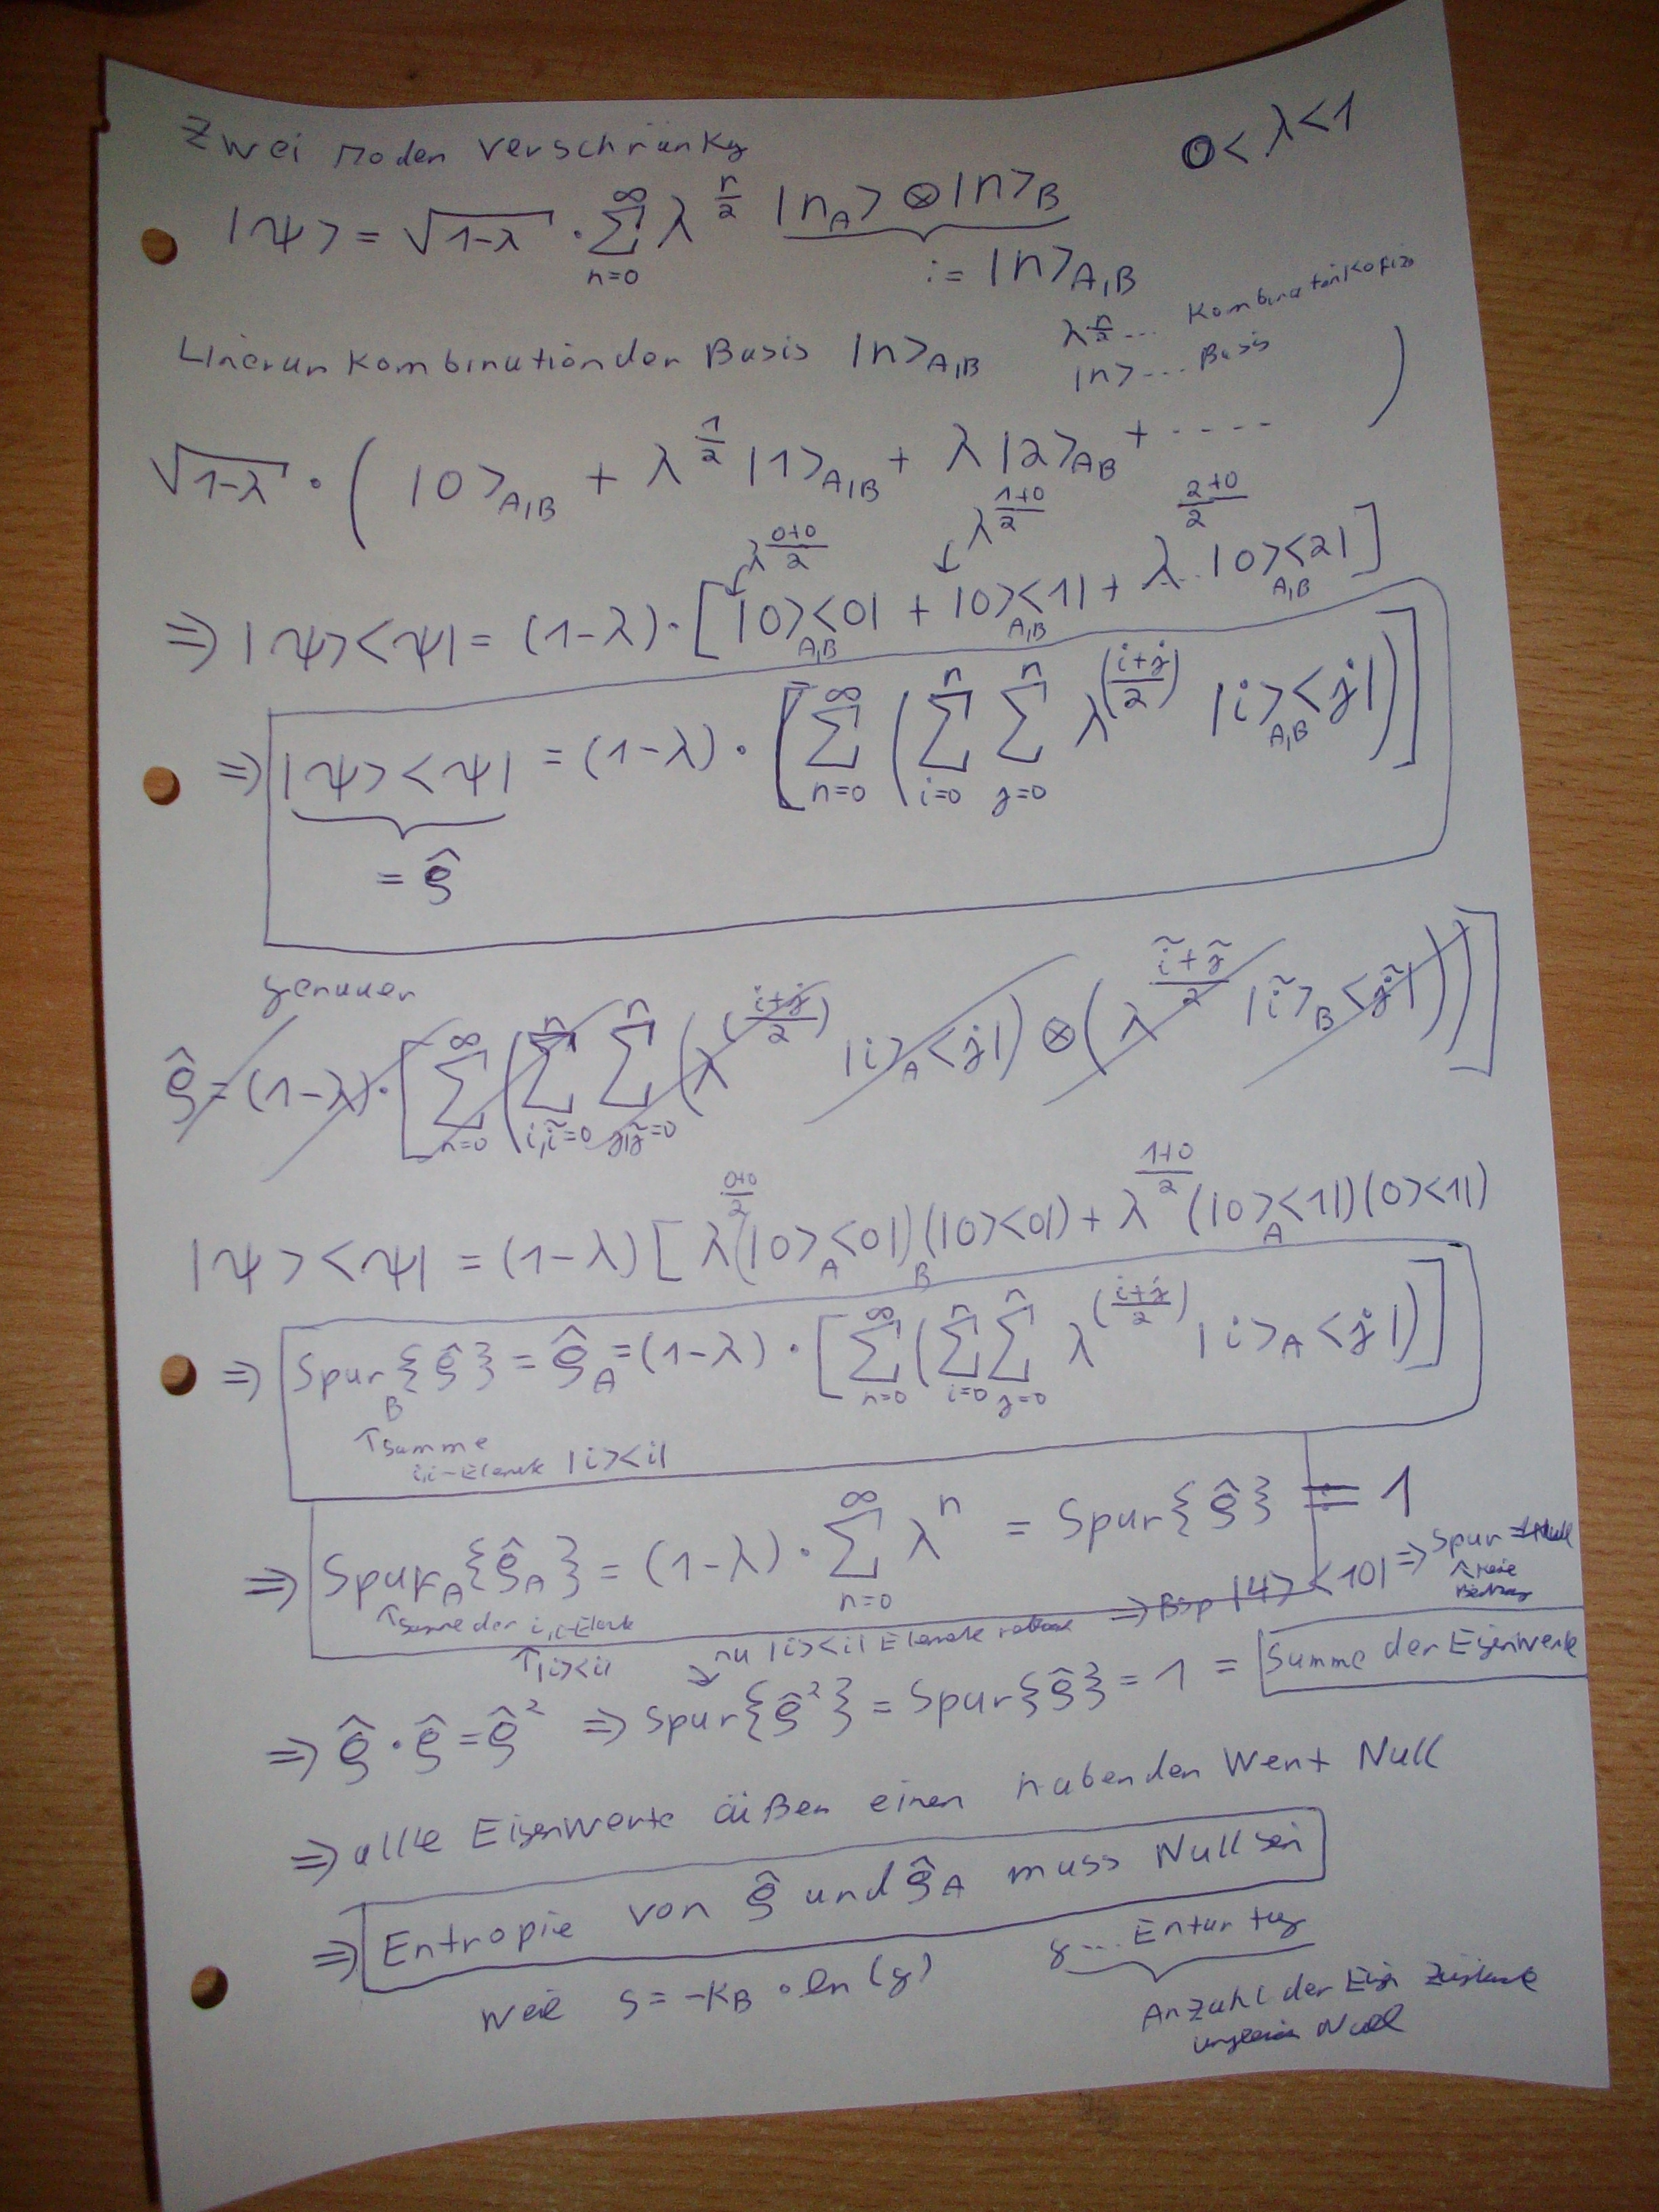 Zwei Moden verschränky 0 < λ < 1
|ψ> = √(1-λ) · ∑_{n=0}^{∞} λ^{n/2} |n_A> ⊗ |n>_B
:= |n>_{A,B}
Linearkombination der Basis |n>_{A,B} λ^{n/2} ...
|n> ... Basis
√(1-λ) · ( |0>_{A,B} + λ^{1/2} |1>_{A,B} + λ |2>_{AB} + ---- )
λ^{(0+0)/2} λ^{(1+0)/2} (2+0)/2
⇒ |ψ><ψ| = (1-λ) · [ |0><0|_{A,B} + |0><1|_{A,B} + λ |0><2|_{A,B} ]
⇒ |ψ><ψ| = (1-λ) · [ ∑_{n=0}^{∞} ( ∑_{i=0}^{n} ∑_{j=0}^{n} λ^{((i+j)/2)} |i>_{A,B}<j| ) ]
= ρ̂
genauer
ρ̂ = (1-λ) · [ ∑_{n=0}^{∞} ( ∑_{i,ĩ=0}^{n} ∑_{j,j̃=0}^{n} ( λ^{((i+j)/2)} |i>_A<j| ) ⊗ ( λ^{(ĩ+j̃)/2} |ĩ>_B<j̃| ) ) ]
|ψ><ψ| = (1-λ) [ λ^{(0+0)/2} (|0>_A<0|)_B (|0><0|) + λ^{(1+0)/2} (|0>_A<1|) (0><1|)
⇒ Spur_B{ρ̂} = ρ̂_A = (1-λ) · [ ∑_{n=0}^{∞} ( ∑_{i=0}^{n} ∑_{j=0}^{n} λ^{((i+j)/2)} |i>_A<j| ) ]
↑ Summe
i,i-Elemente |i><i|
⇒ Spur_A{ρ̂_A} = (1-λ) · ∑_{n=0}^{∞} λ^n = Spur{ρ̂} = 1
↑ Summe der i,i-Elemente ⇒ Bsp |4><10| ⇒ Spur = Null
↑ keine
↑ |i><i| nur |i><i| Elemente
⇒ ρ̂ · ρ̂ = ρ̂² ⇒ Spur{ρ̂²} = Spur{ρ̂} = 1 = Summe der Eigenwerte
⇒ alle Eigenwerte außer einen haben den Wert Null
⇒ Entropie von ρ̂ und ρ̂_A muss Null sein
weil S = -k_B · ln(g) g ... Entartug
Anzahl der Eigen Zustände
ungleich Null